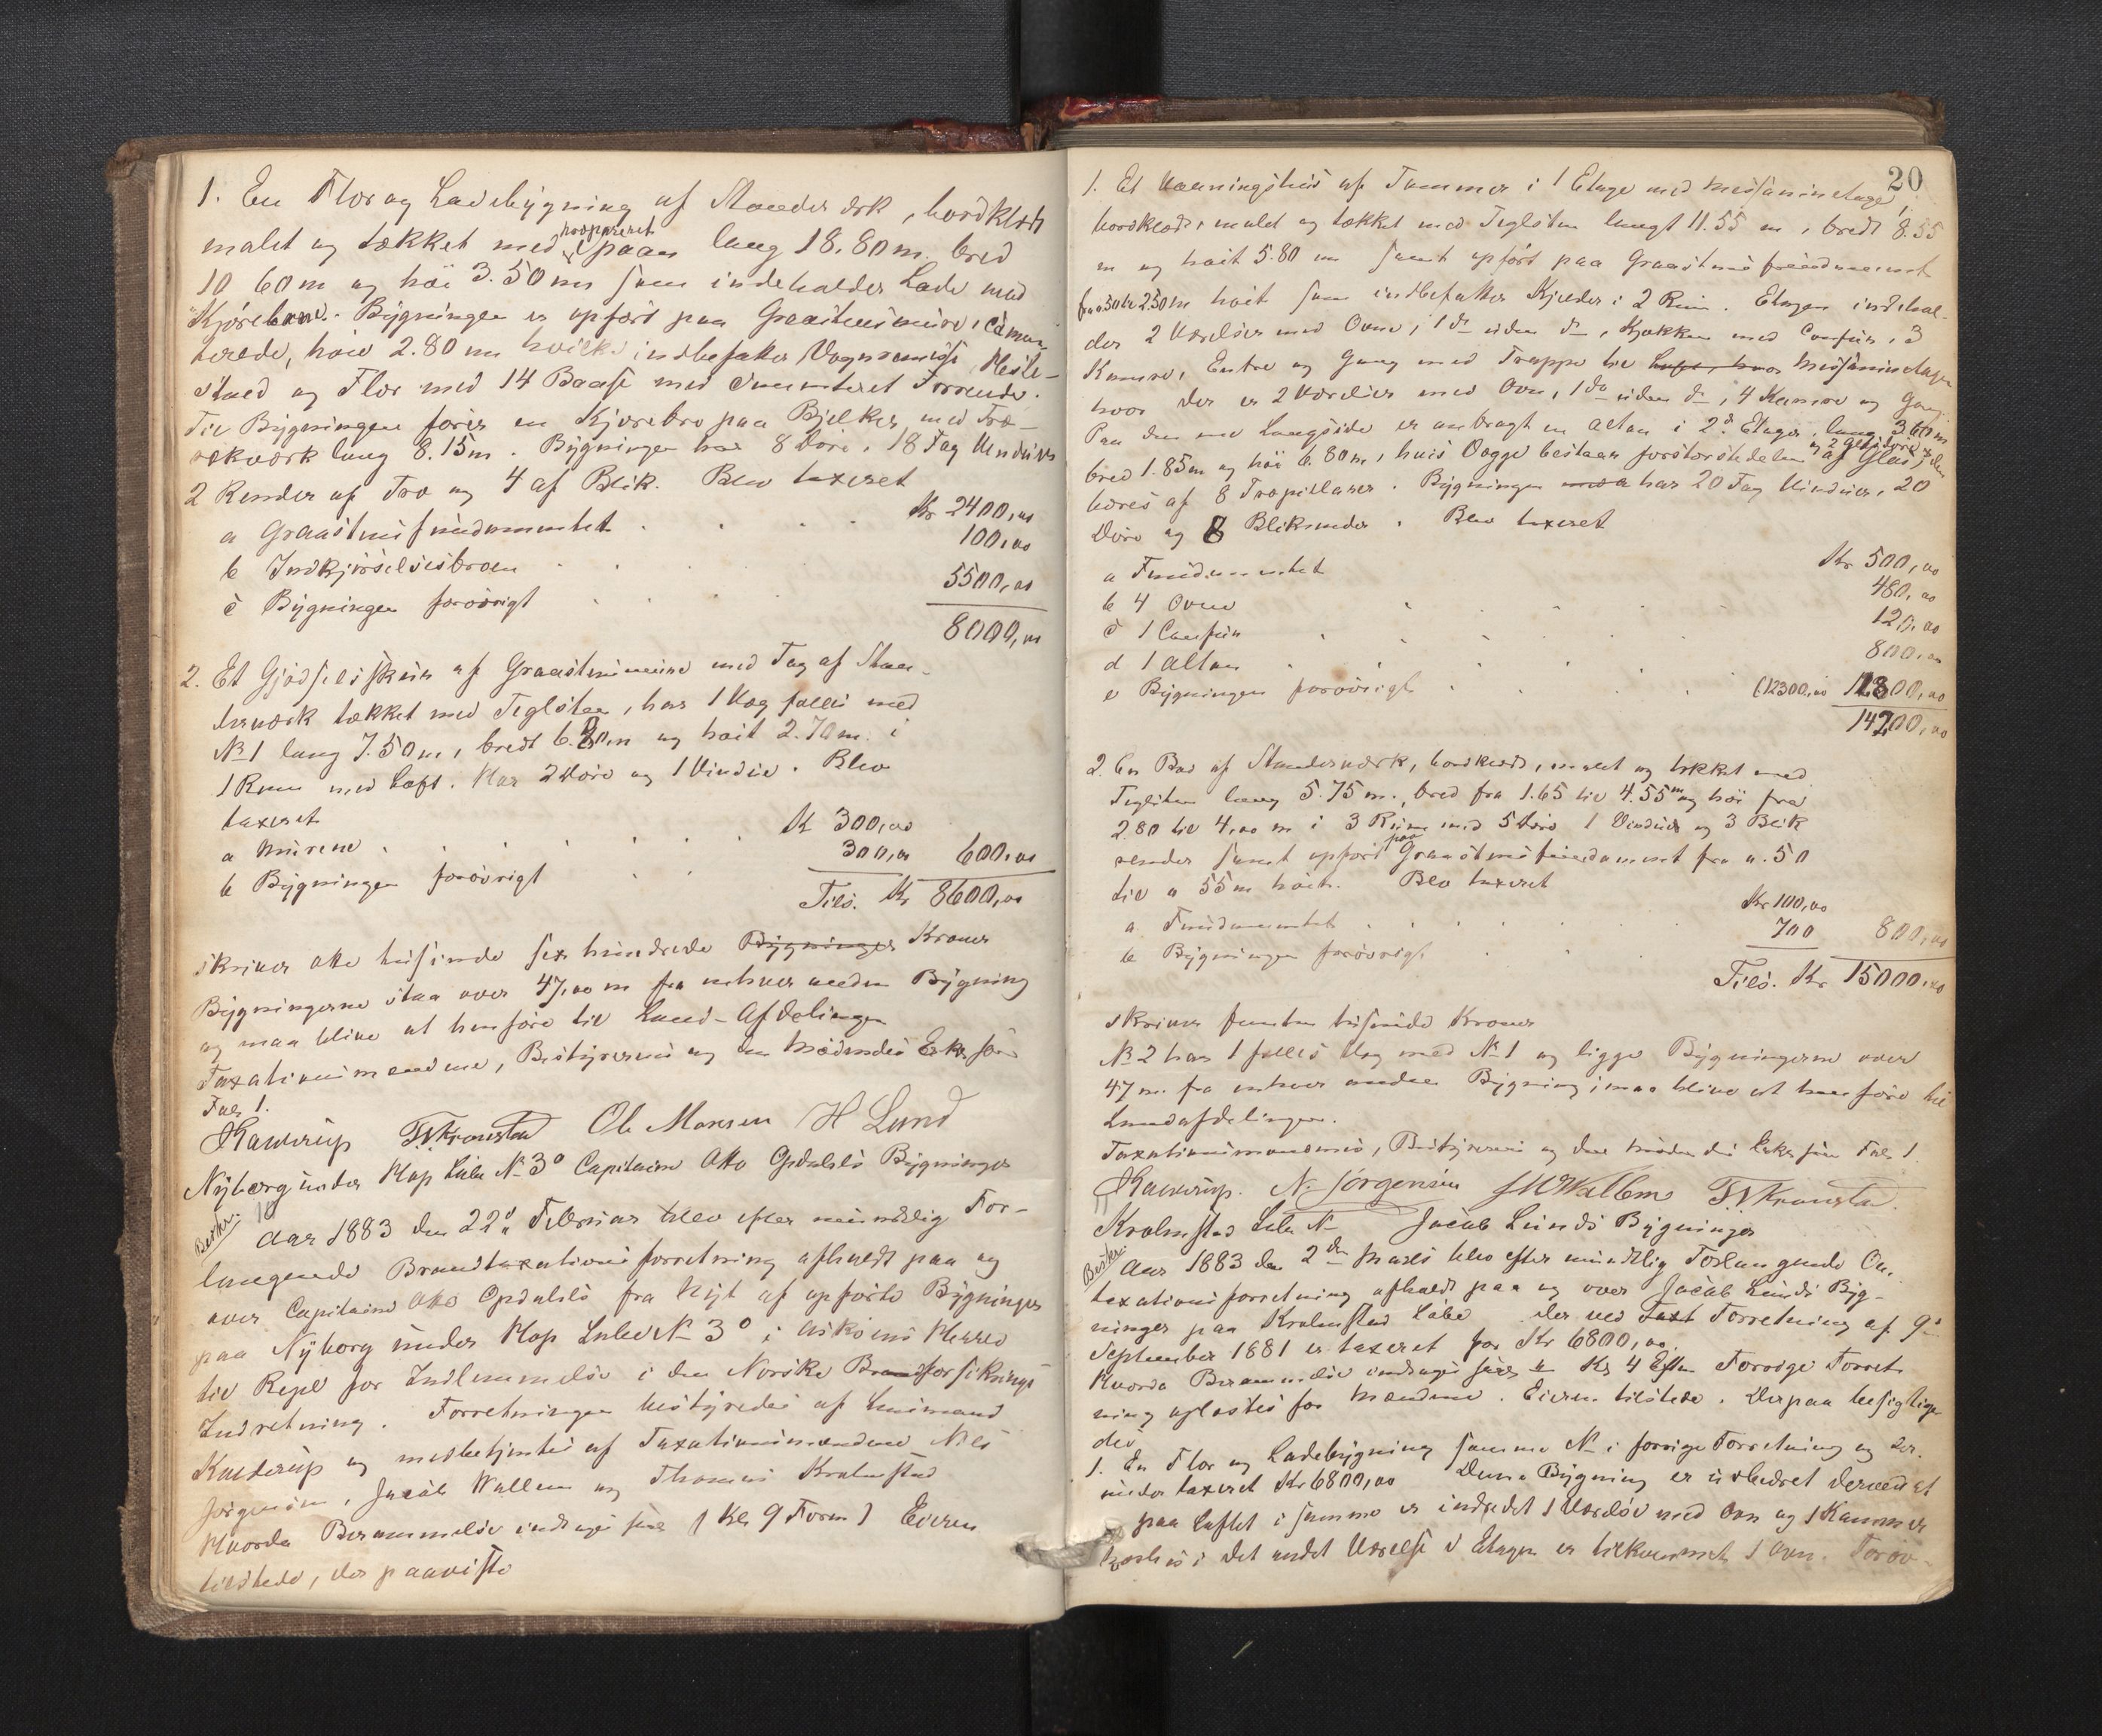 1. En Flor og Ladebygning af Stænderverk, bordklædt
malet og tækket med rhoppreret spaan lang 18.80 m. bred
10 60 m og høi 3.50 m som indeholder Lade med
Kjørebane. Bygningen er opført paa Graasteensmure, cemen-
terede, høie 2.80 m hvilke indbefatter Vognremise, Heste-
stald og Flor med 14 Baase med cementeret Forrende.
Til Bygningen fører en Kjørebro paa Bjelker med Træ-
rekværk lang 8.15 m. Bygningen har 8 Døre, 18 Fag Vinduer
2 Render af Træ og 4 af Blik. Blev taxeret
a Graasteensfundamentet . . . Kr 2400,00
b Indkjørselsbroen . . . 100,00
c Bygningen forøvrigt . . . 5500,00
8000,00
2. Et Gjødselskur af Graasteensmure med Tag af Stæn-
derværk tækket med Teglsten, har 1 Væg fælles med
No 1 lang 7.50 m, bredt 6.80 m og høit 2.70 m. i
1 Rum med Loft. Har 2 Døre og 1 Vindue. Blev
taxeret
a Murene . . . Kr 300,00
b Bygningen forøvrigt . . 300,00 600,00
Tils. Kr 8600,00
skriver otte tusinde sex hundrede Bygninger Kroner
Bygningerne staa over 47,00 m fra enhver anden Bygning
og maa blive at henføre til Land-Afdelingen
Taxationsmændene, Bestyrerens og den mødendes Exk. som
Fol. 1.
Kaurup T. Kranstad Ole Monsen H Lund
Nyborg under Hop Lube No 30 Capitaine Otto Opdahls Bygninger
Beskr. 10
Aar 1883 den 22d Februar blev efter mundtlig For-
langende Brandtaxationsforretning afholdt paa og
over Capitaine Otto Opdahls fra Nyt af opførte Bygninger
paa Nyborg under Hop Lube No 30 i Askøens Herred
til Regel for Indlemmelse i den Norske Brandforsikrings
Indretning. Forretningen bestyredes af Lensmand
Kaurup og medbetjentes af Taxationsmændene Nils
Jørgensen, Jacob Wallem og Thomas Kralmstad
Hvorda Berammelse indtages her 1 Kl. 9 Form 1 Eieren
tilstede, der paaviste
20
1. Et Vaaningshus af Tømmer i 1 Etage med Messaninetage,
bordklædt, malet og tækket med Teglsten langt 11.55 m, bredt 8.55
m og høit 5.80 m samt opført paa Graasteensfundament
fra 0.50 til 2.50 m høit som indbefatter Kjelder i 2 Rum. Etagen indehol-
der 2 Værelser med Ovne, 1 do uden do, Kjøkken med Comfur, 3
Kamre, Entre og Gang med Trappe til Loft, hvor Messaninetagen
hvor der er 2 Værelser med Ovn, 1 do uden do, 4 Kamre og Gang.
Paa den ene Langside er anbragt en Altan i 2d Etager, lang 3.60 m
bred 1.85 m og høi 6.80 m, hvis Vægge bestaar forstørstedelen af Glas og 2 Glasdøre, den
bæres af 8 Træpillarer. Bygningen har 20 Fag Vinduer, 20
Døre og 8 Blikrender. Blev taxeret
a Fundamentet Kr 500,00
b 4 Ovne . . . 480,00
c 1 Comfur . . . 120,00
d 1 Altan . . . 800,00
e Bygningen forøvrigt . . . (12300,00 12300,00
14200,00
2. En Bod af Stænderværk, bordklædt, malet og tækket med
Teglsten lang 5.75 m., bred fra 1.65 til 4.55 m og høi fra
2.80 til 4,00 m i 3 Rum med 5 Døre 1 Vindue og 3 Blik
render samt opført paa Graasteensfundament fra 0.50
til 0 55 m høit. Blev taxeret
a. Fundamentet . . . Kr 100,00
b Bygningen forøvrigt . . . 700 800,00
Tils. Kr 15000,00
skriver femten tusinde Kroner
No 2 har 1 fælles Væg med No 1 og ligger Bygningerne over
47 m. fra enhver anden Bygning, maa blive at henføre til
Landafdelingen.
Taxationsmændenes, Bestyrerens og den mødendes Exk. som Fol. 1.
Kaurup. N. Jørgensen J. W Wallem T. Kranstad.
Kralmstad Lube No Jacob Lunds Bygninger
Beskr.
Aar 1883 den 2den Marts blev efter mundtlig Forlangende Om-
taxationsforretning afholdt paa og over Jacob Lunds Byg-
ninger paa Kralmstad Lube der ved Taxt Forretning af 9d
September 1881 er taxeret for Kr 6800,00.
Hvorda Berammelse indtages her Kl 4 Efter Forrige Forret-
ning oplæstes for Mændene. Eieren tilstede. Derpaa besigtige-
des
1. En Flor og Ladebygning samme No i forrige Forretning og der-
under taxeret Kr 6800,00 Denne Bygning er udbedret derved at
paa Loftet i samme er indredet 1 Værelse med Ovn og 1 Kammer
hvorhos i det andet Værelse i Etagen er tilkommet 1 Ovn. Forøv-